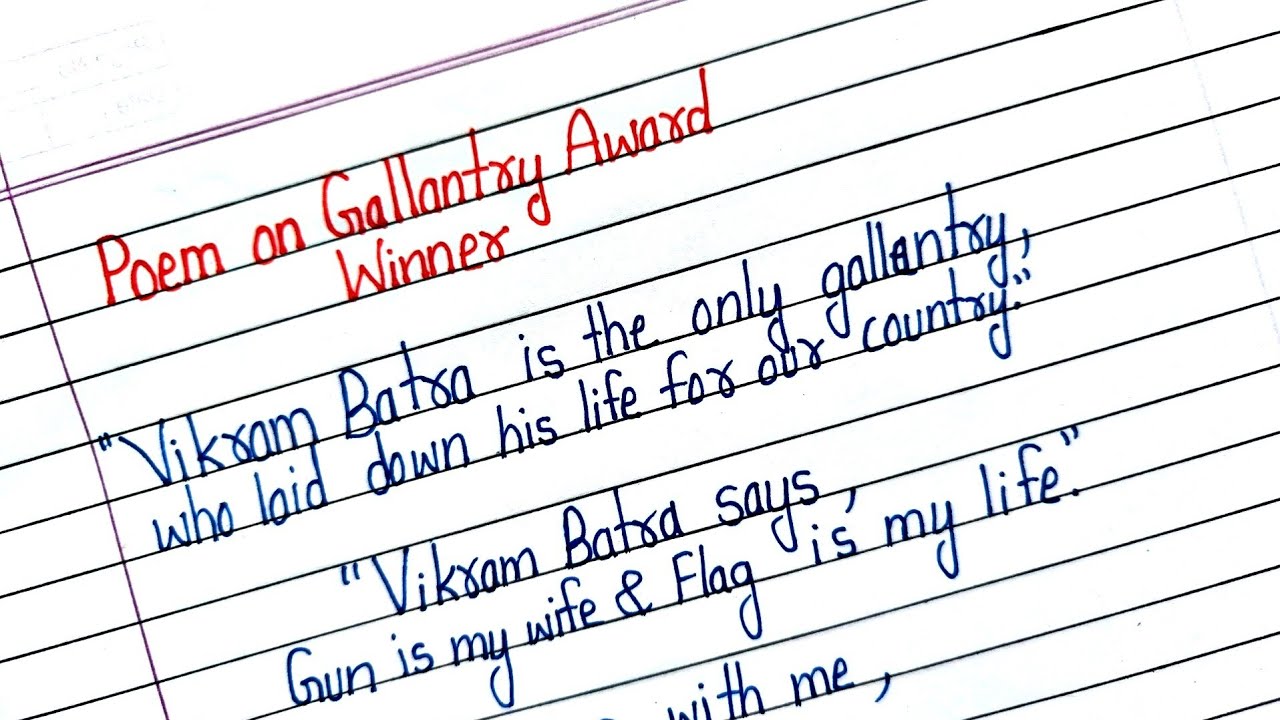 Poem on Gallantry Award
Winner
"Vikram Batra is the only gallantry,
who laid down his life for our country."
"Vikram Batra says,
Gun is my wife & Flag is my life."
with me,